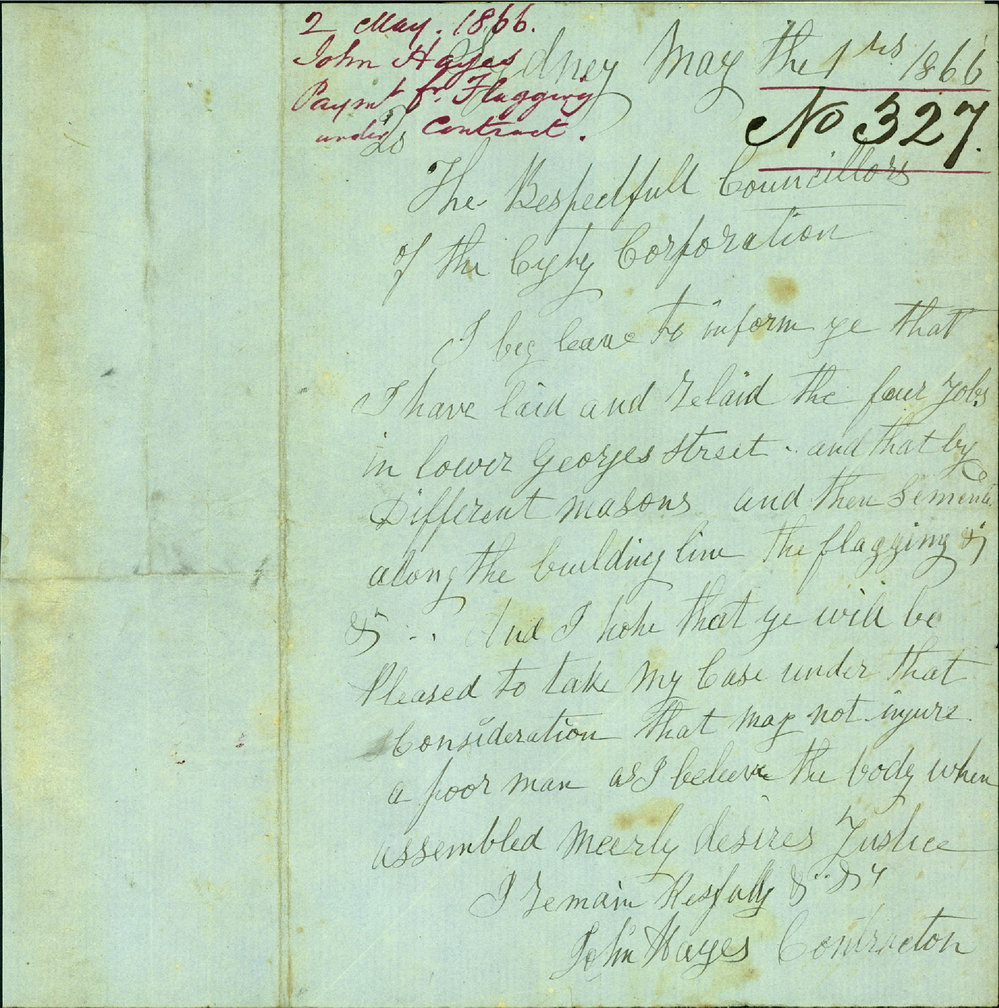 2 May. 1866.
John Hayes
Paymt fr Flagging
under Contract.
Sydney May the 1rs 1866
No 327.
To
The Respectfull Councillors
of the Cyty Corporation
I beg leave to inform ye that
I have laid and relaid the four Jobs
in lower Georges Street .. and that by
Different masons and then Sementd
along the building line the flagging &c
&c .. And I hope that ye will be
Pleased to take my Case under that
Consideration that may not injure
a poor man as I believe the body when
assembled meerly desires Justice
I remain Resfully &.. &c
John Hayes Contractor